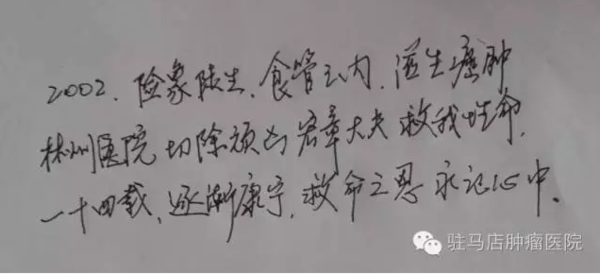 2002. 险象陡生,食管之内,滋生癌肿
林州医院 切除顽凶 宏章大夫 救我性命,
一十四载,逐渐康宁,救命之恩 永记心中。
驻马店肿瘤医院